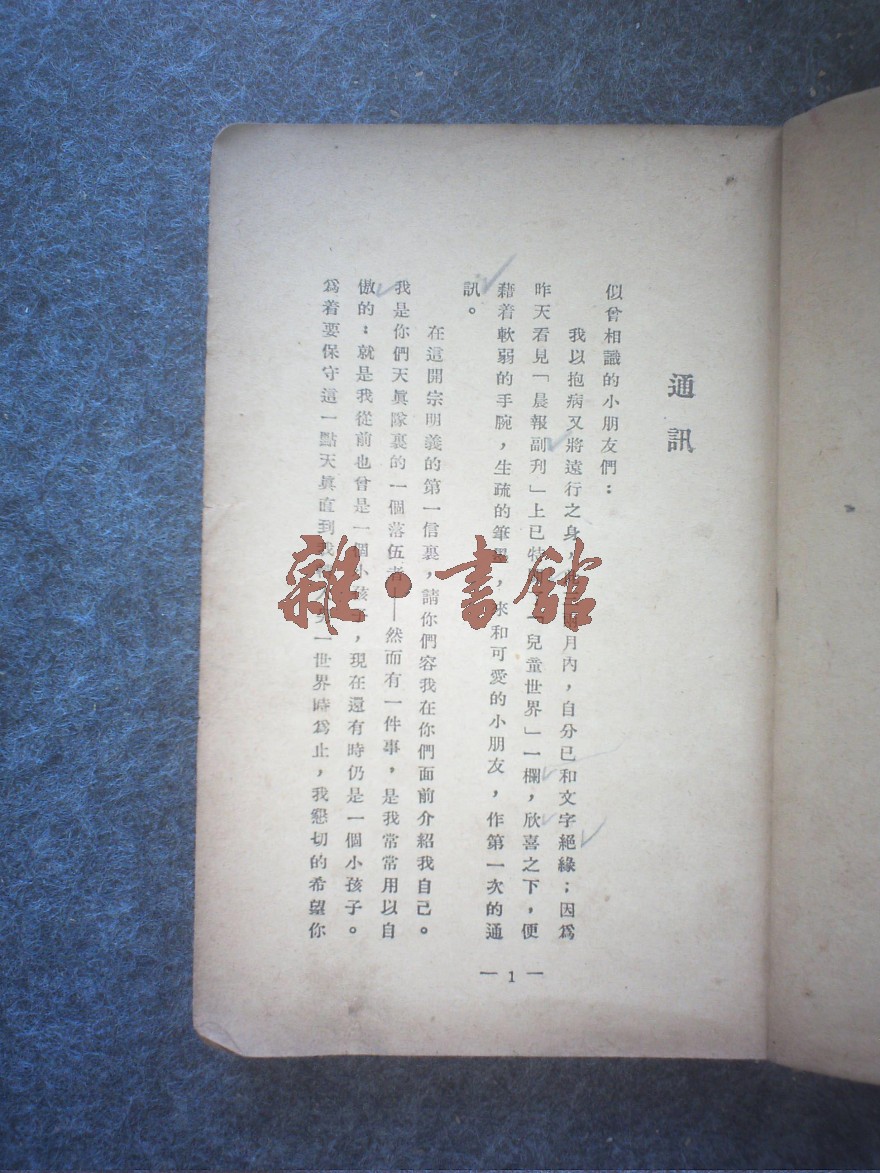 通訊
似曾相識的小朋友們：
我以抱病又將遠行之身，月內，自分已和文字絕緣；因爲
昨天看見「晨報副刋」上已特「兒童世界」一欄，欣喜之下，便
藉着軟弱的手腕，生疏的筆，來和可愛的小朋友，作第一次的通
訊。
在這開宗明義的第一信裏，請你們容我在你們面前介紹我自己。
我是你們天眞隊裏的一個落伍者——然而有一件事，是我常常用以自
傲的：就是我從前也曾是一個小孩子，現在還有時仍是一個小孩子。
爲着要保守這一點天眞直到我一世界時爲止，我懇切的希望你
— 1 —
雜·書館